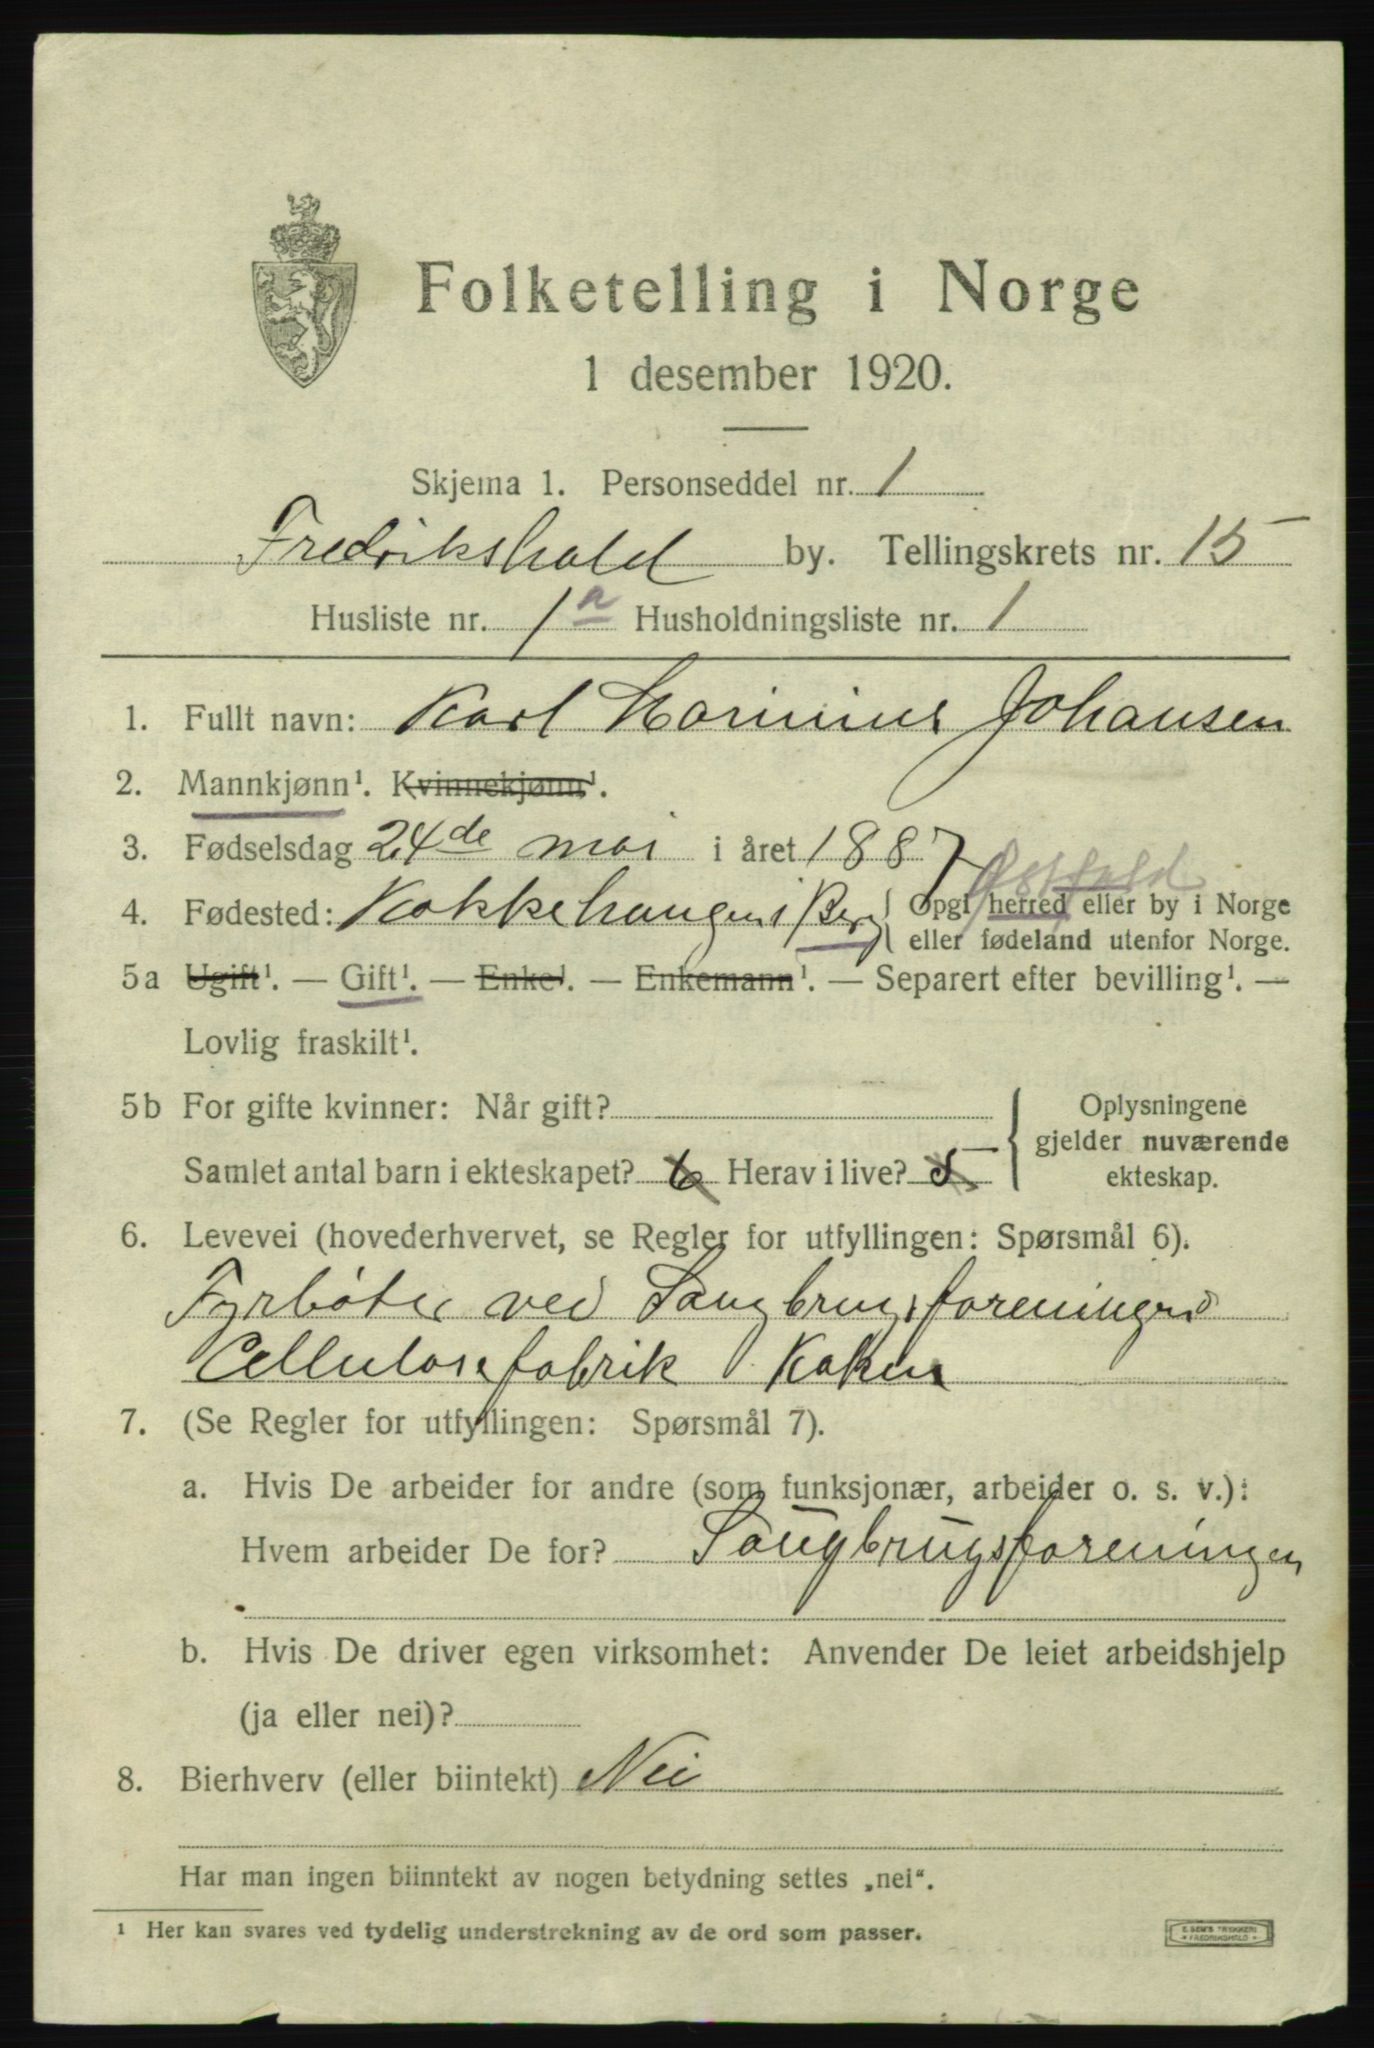 Folketelling i Norge
1 desember 1920.
Skjema 1. Personseddel nr. 1
Fredrikshald by. Tellingskrets nr. 15
Husliste nr. 1a Husholdningsliste nr. 1
1. Fullt navn: Karl Marinius Johansen
2. Mannkjønn¹. Kvinnekjønn¹.
3. Fødselsdag 24de mai i året 1887
Østfold
4. Fødested: Kokkehaugen i Berg { Opgi herred eller by i Norge
eller fødeland utenfor Norge.
5a Ugift¹. — Gift¹. — Enke¹. — Enkemann¹. — Separert efter bevilling¹. —
Lovlig fraskilt¹.
5b For gifte kvinner: Når gift?
Samlet antal barn i ekteskapet? 6 Herav i live? 5
Oplysningene
gjelder nuværende
ekteskap.
6. Levevei (hovederhvervet, se Regler for utfyllingen: Spørsmål 6).
Fyrbøter ved Saugbrugsforeningens
Cellulosefabrik Koken
7. (Se Regler for utfyllingen: Spørsmål 7).
a. Hvis De arbeider for andre (som funksjonær, arbeider o. s. v.):
Hvem arbeider De for? Saugbrugsforeningen
b. Hvis De driver egen virksomhet: Anvender De leiet arbeidshjelp
(ja eller nei)?
8. Bierhverv (eller biintekt) Nei
Har man ingen biinntekt av nogen betydning settes „nei“.
¹ Her kan svares ved tydelig understrekning av de ord som passer.
E. SEM'S TRYKKERI
FREDRIKSHALD